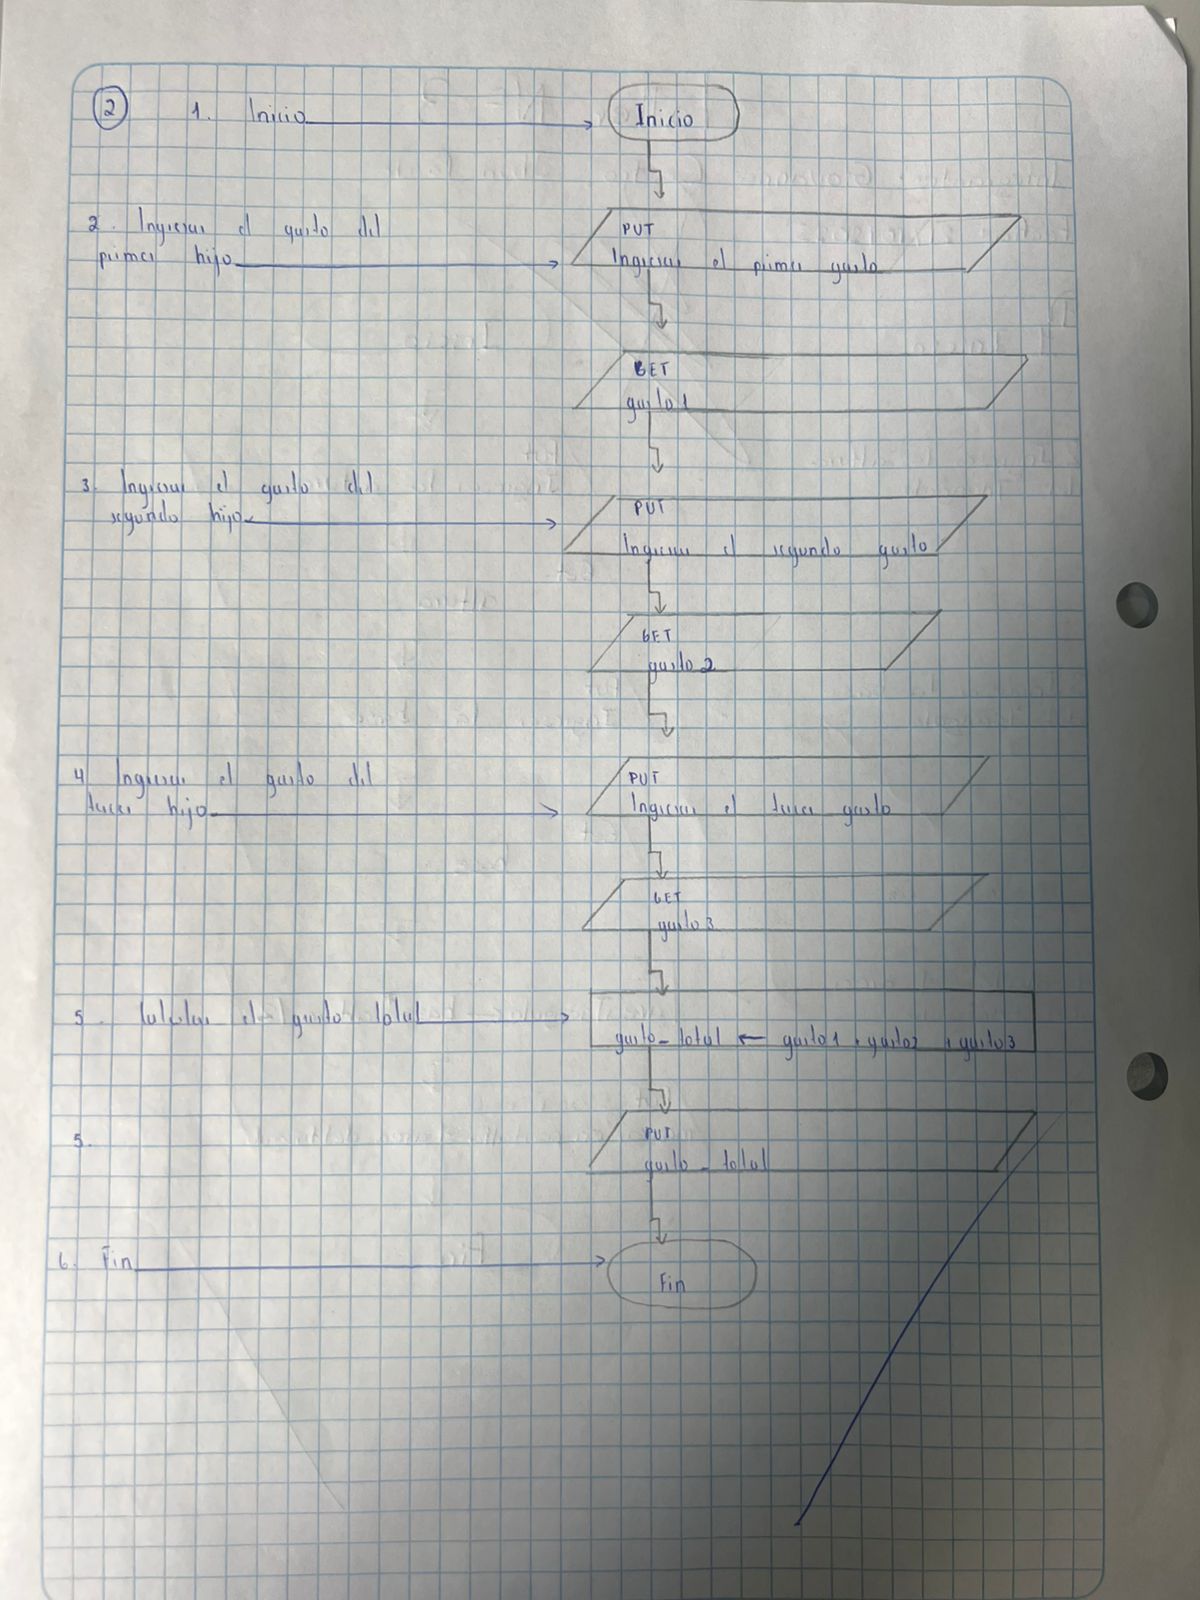 2
1. Inicio
Inicio
2. Ingresar el gasto del
primer hijo
PUT
Ingresar el primer gasto
GET
gasto1
3. Ingresar el gasto del
segundo hijo
PUT
Ingresar el segundo gasto
GET
gasto2
4 Ingresar el gasto del
tercer hijo
PUT
Ingresar el tercer gasto
GET
gasto3
5. Calcular el gasto total
gasto_total ← gasto1 + gasto2 + gasto3
5.
PUT
gasto_total
6. Fin
Fin